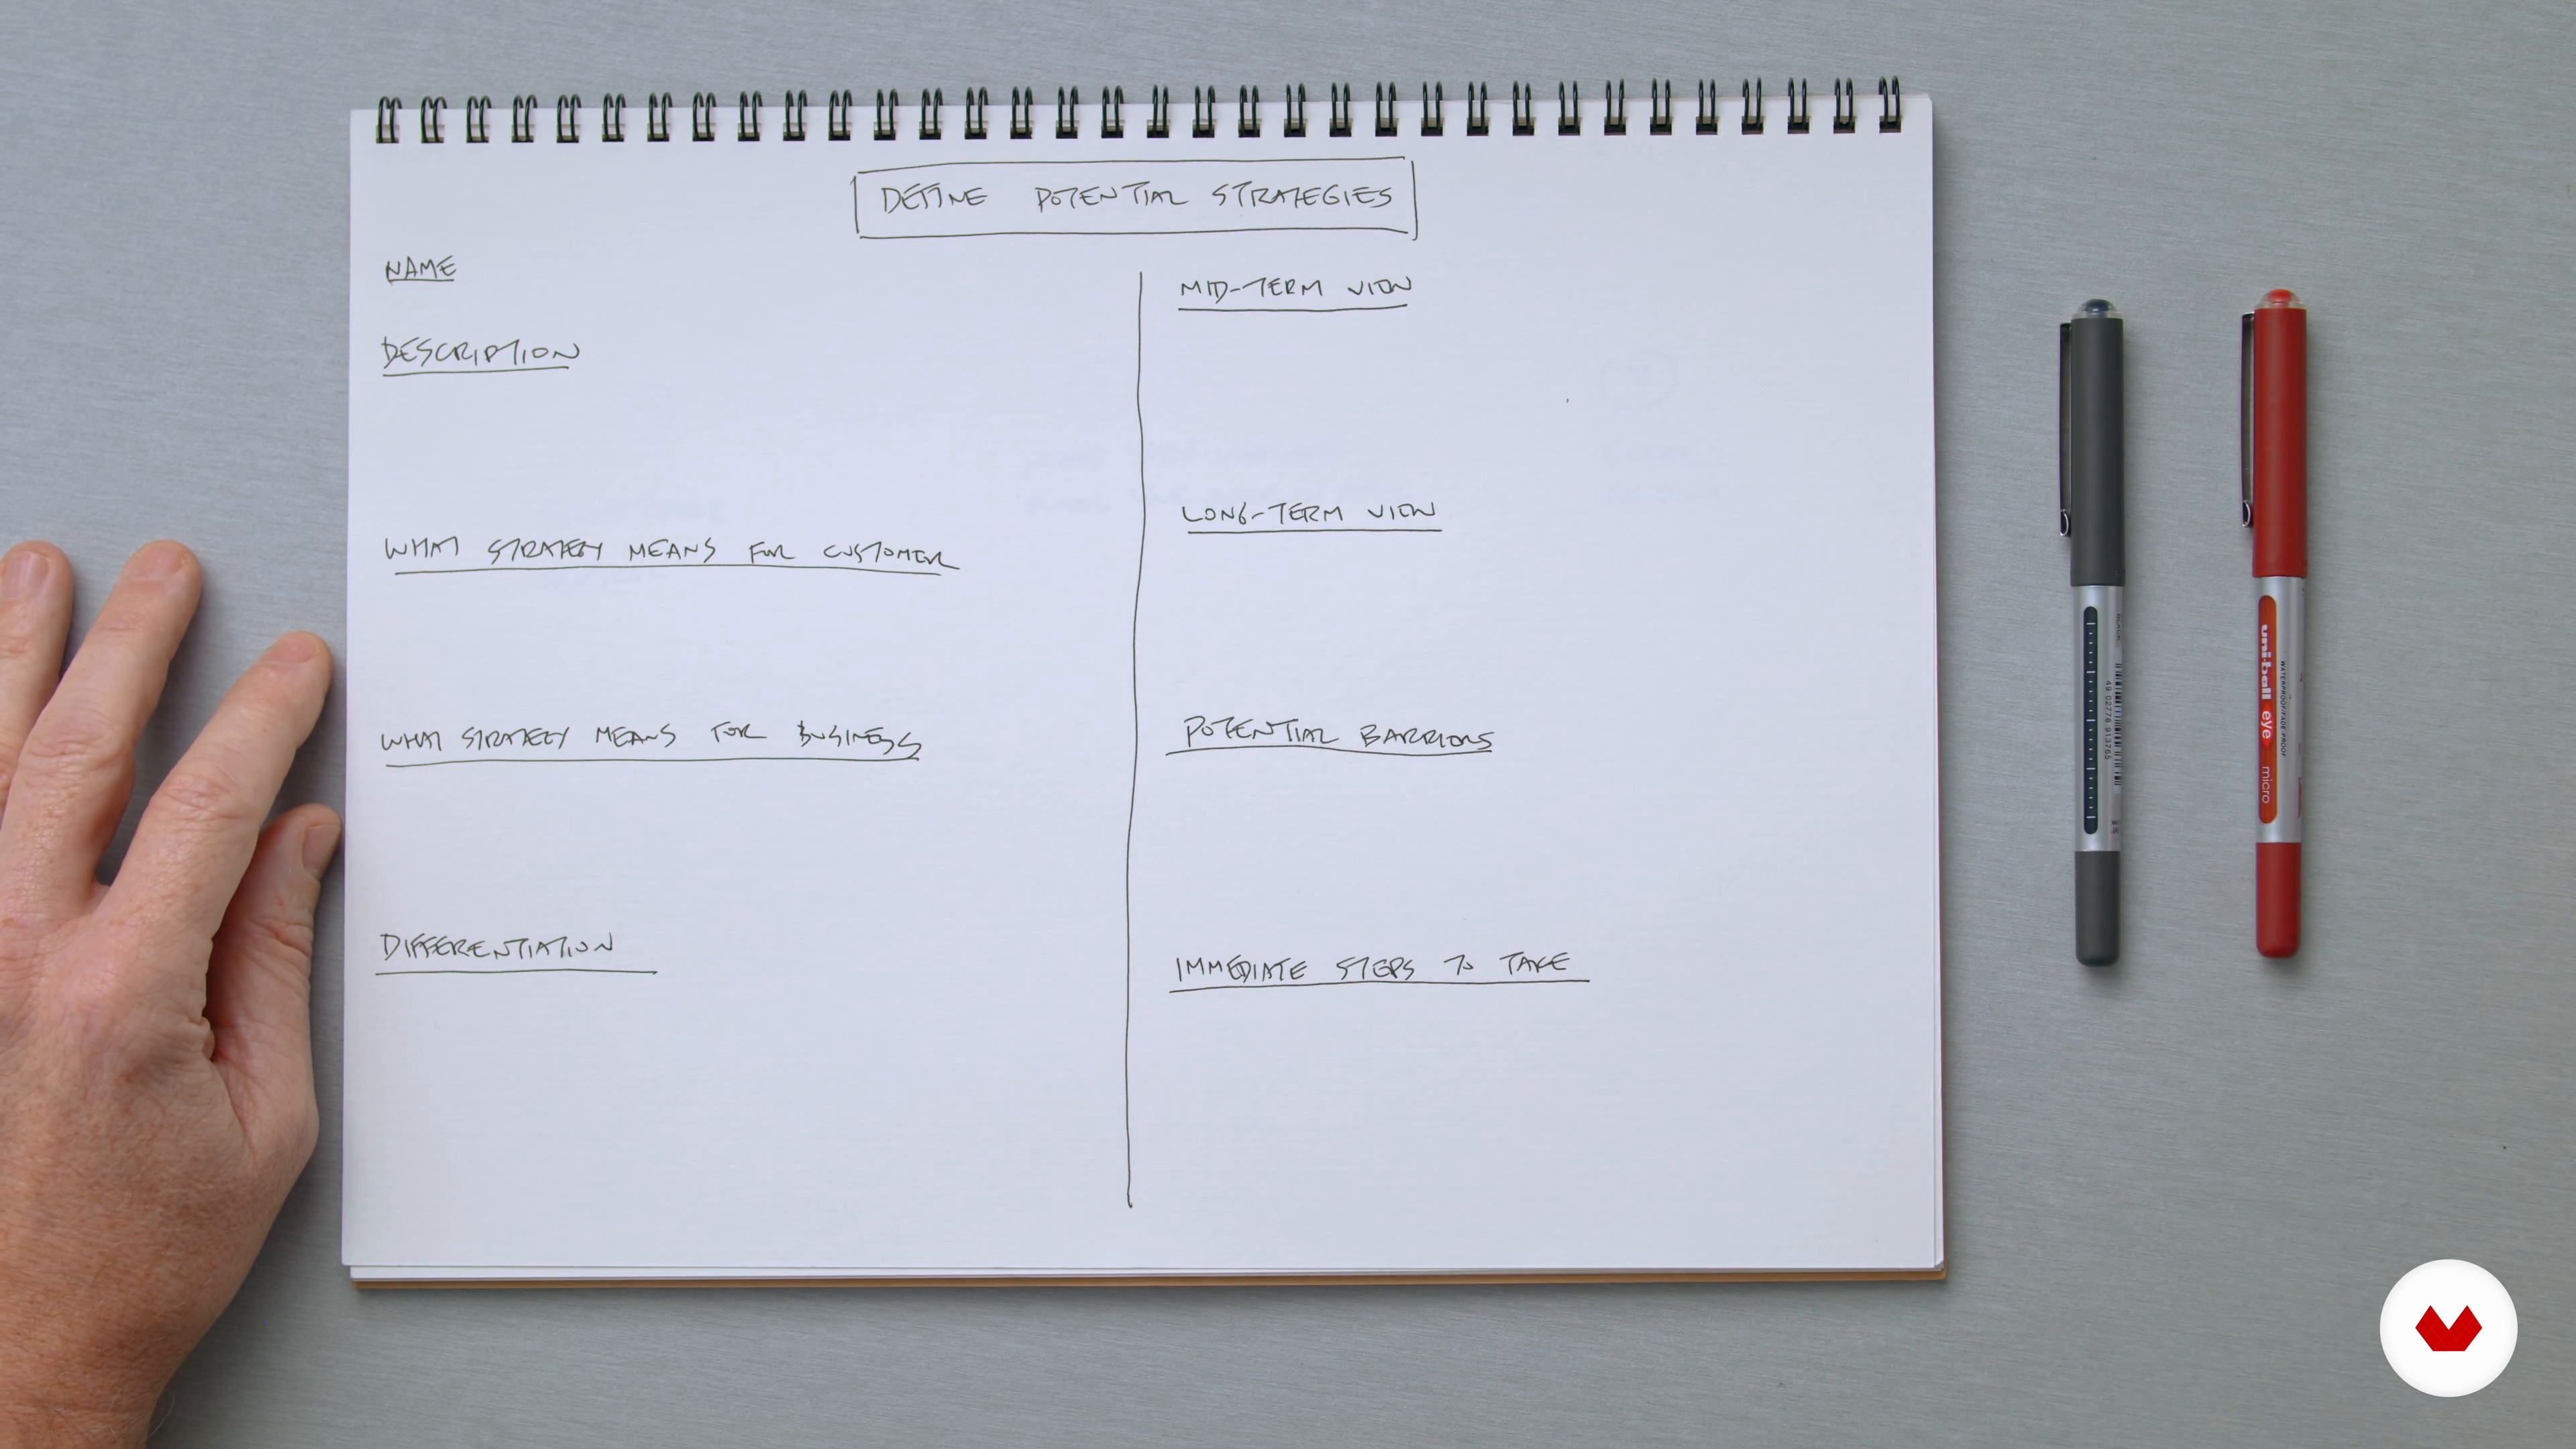 DEFINE POTENTIAL STRATEGIES
NAME
DESCRIPTION
WHAT STRATEGY MEANS FOR CUSTOMER
WHAT STRATEGY MEANS FOR BUSINESS
DIFFERENTIATION
MID-TERM VIEW
LONG-TERM VIEW
POTENTIAL BARRIERS
IMMEDIATE STEPS TO TAKE
49 02778 913765
uni-ball eye micro
WATERPROOF/FADE-PROOF